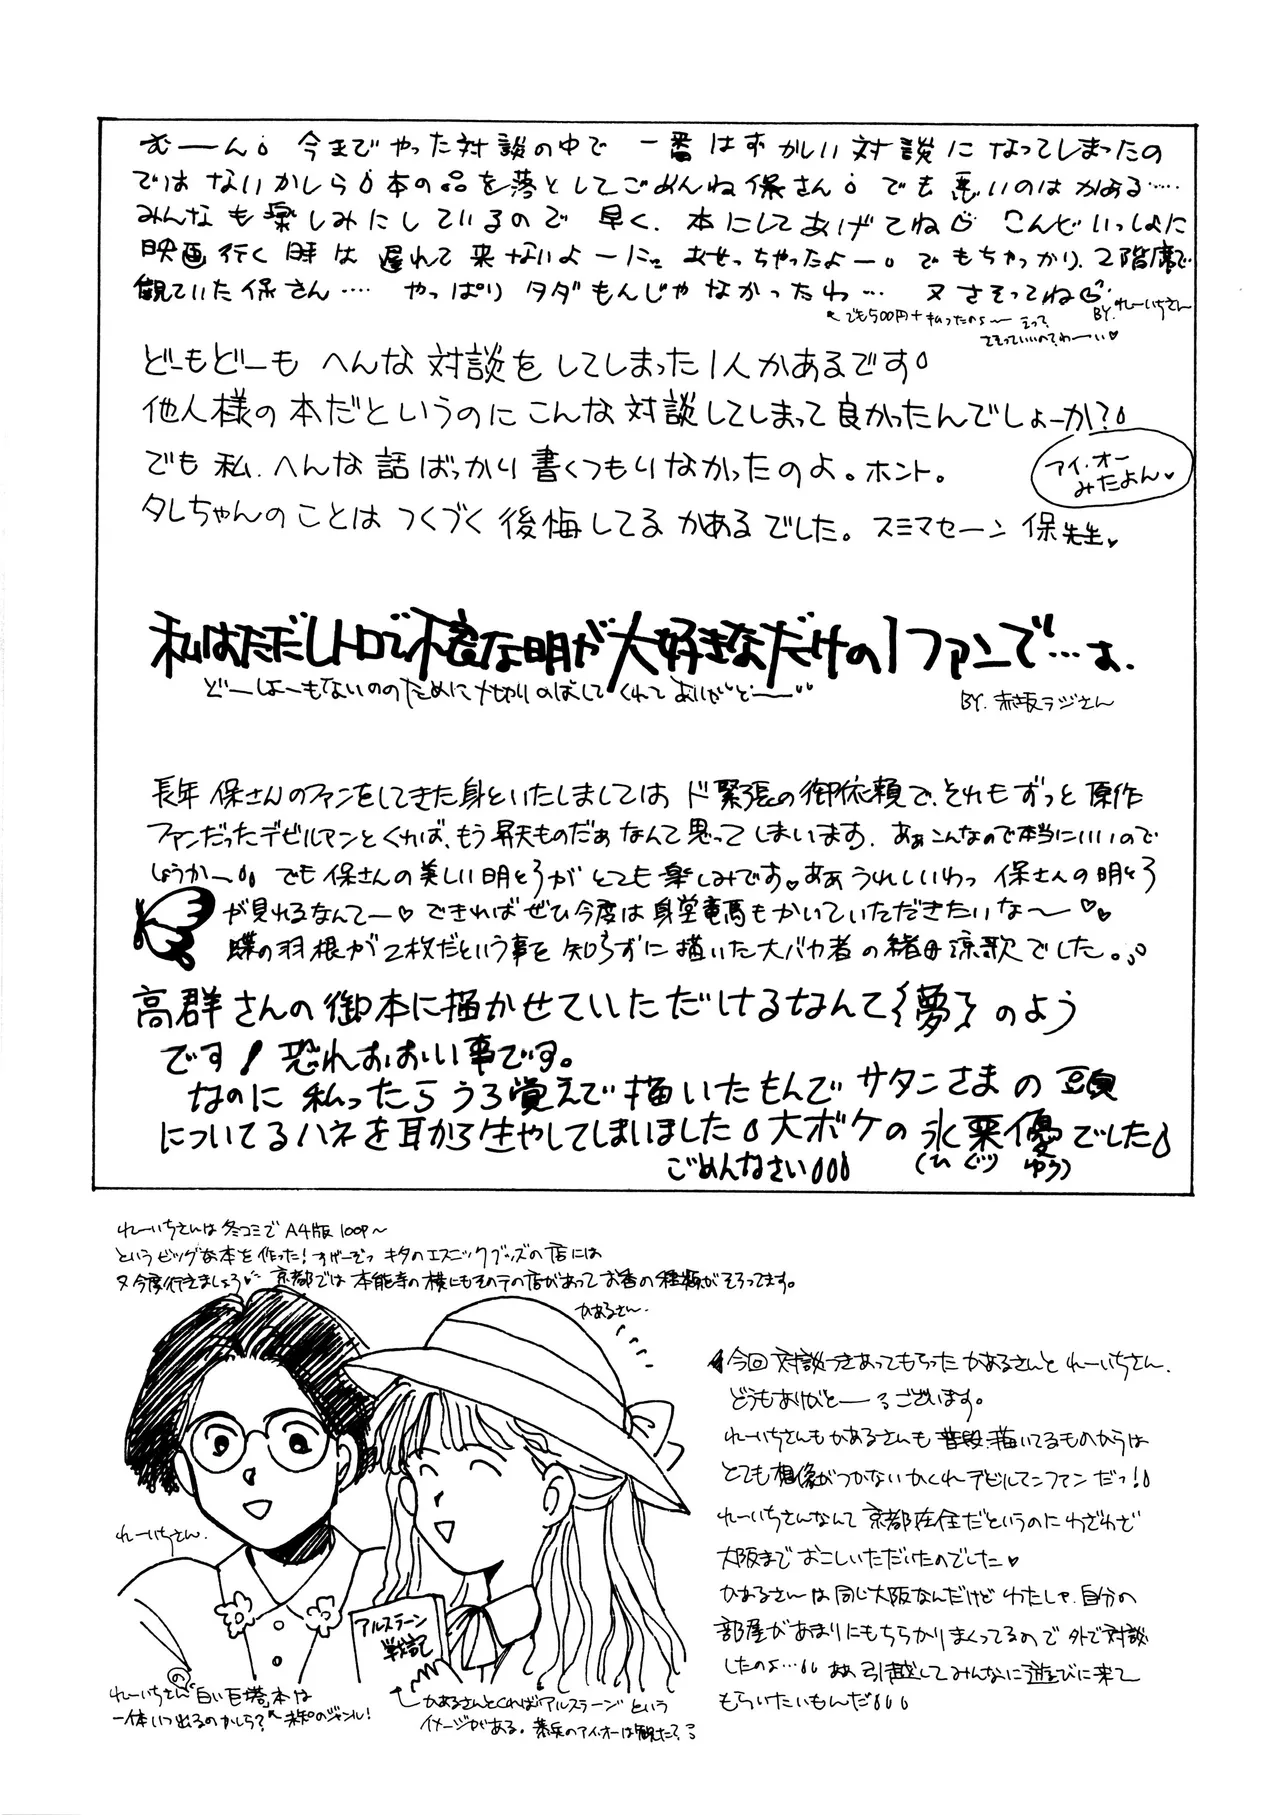 むーん 今までやった対談の中で 一番はずかしい対談になってしまったの
ではないかしら 本の品を落としてごめんね保さん でも悪いのはかある……
みんなも楽しみにしているので 早く、本にしてあげてね こんどいっしょに
映画行く時は 遅れて来ないよーに。 あせっちゃったよー。でもちゃっかり、2階席で
観ていた保さん…… やっぱりタダもんじゃなかったわ… 又さそってね
BY.れーいちさん
でも500円+払ったのよ〜
さそっていいのてわーい♡
どーもどーも へんな対談をしてしまった1人かあるです
他人様の本だというのにこんな対談してしまって良かったんでしょーか?
でも私、へんな話ばっかり書くつもりなかったのよ。ホント。
アイ・オー
みたよん♥
タレちゃんのことはつくづく後悔してるかあるでした。スミマセーン 保先生♥
私はただレトロで不良な明が大好きなだけの1ファンで…す.
どーしょーもないののために〆切りのばしてくれてありがどー
BY.赤坂ラジさん
長年保さんのファンをしてきた身といたしましてはド緊張の御依頼で、それもずっと原作
ファンだったデビルマンとくれば、もう昇天ものだぁなんて思ってしまいます. あぁこんなので本当にいいので
しょうかー でも保さんの美しい明と了がとても楽しみです♥ああうれしいわっ 保さんの明と了
が見れるなんてー♡できればぜひ今度は身堂竜馬もかいていただきたいな〜♡♥
蝶の羽根が2枚だという事を知らずに描いた大バカ者の緒田涼歌でした。
高群さんの御本に描かせていただけるなんて夢のよう
です!恐れおおい事です。
なのに私ったらうろ覚えで描いたもんでサタンさまの頭
についてるハネを耳から生やしてしまいました 大ボケの氷栗優でした
ごめんなさい
(ひぐり ゆう)
れーいちさんは冬コミでA4版100P〜
というビッグな本を作った!すげーぞっ キタのエスニックグッズの店には
又今度行きましょう 京都では本能寺の横にもその手の店があってお香の種類がそろってます。
かあるさん.
今回対談つきあってもらったかあるさんとれーいちさん.
どうもありがとーございます。
れーいちさんもかあるさんも普段描いてるものからは
とても想像がつかないかくれデビルマンファンだっ!
れーいちさんなんて京都在住だというのにわざわざ
大阪までおこしいただいたのでした♥
かあるさんは同じ大阪なんだけどわたしゃ、自分の
部屋があまりにもちらかりまくってるので外で対談
したのよ… ああ引越してみんなに遊びに来て
もらいたいもんだ
れーいちさん.
アルスラーン
戦記
れーいちさんの"白い巨塔"本は
一体いつ出るのかしら?
かあるさんとくればアルスラーンという
イメージがある.